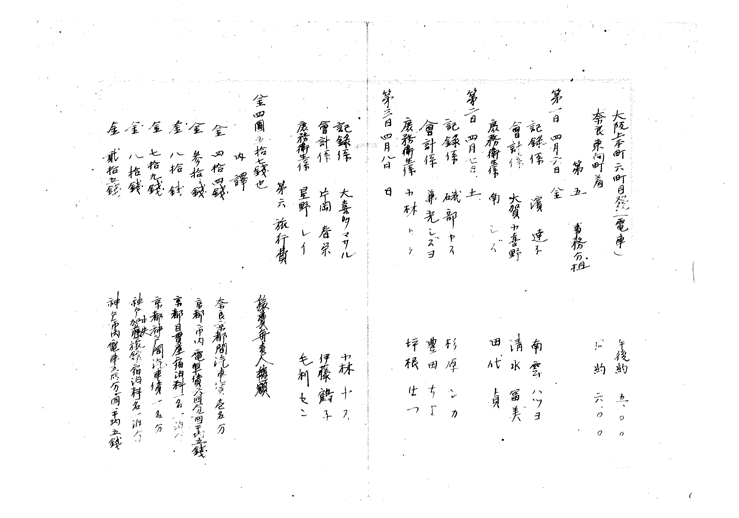 大阪上本町六町目発(電車) 午後約 五、〇〇
奈良東向町着 〃 約 六、〇〇
第五 事務分担
第一日 四月六日 金
記録係 濱 達子 南雲ハツヨ
會計係 大賀か喜野 清水冨美
庶務衛生係 南 シズ 田代 貞
第二日 四月七日 土
記録係 磯部ヤス 杉原シカ
會計係 兼光シズヨ 豊田ちよ
庶務衛生係 小林トシ 坪根せつ
第三日 四月八日 日
記録係 大喜多マサル 小林ヤス
會計係 片岡春栄 伊藤鶴子
庶務衛生係 星野レイ 毛利セン
第六 旅行費
金四圓五拾七錢也
内譯
金 四拾四錢 奈良京都間汽車賃壱名分
金 参拾錢 京都市内電車賃
金 八拾錢 京都 宿泊料一名一泊分
金 七拾九錢 京都神戸間汽車賃一名分
金 八拾錢 神戸 宿泊料一名一泊分
金 貳拾五錢 神戸市内電車 五回分一回平均五錢